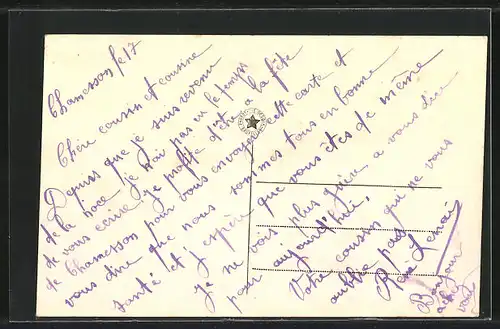 Chamesson le 17
Cher cousin et cousine
Depuis que je suis revenu
de la noce je n'ai pas eu le temps
de vous écrire je profite d'être a la fête
de Chamesson pour vous envoyer cette carte et
vous dire que nous sommes tous en bonne
santé et j'espère que vous êtes de même
je ne vois plus guère a vous dire
pour aujourd'hui,
Votre cousin qui ne vous
oublie pas
René
Bonjour
a